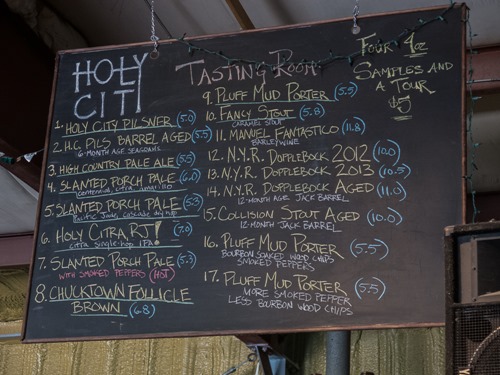 HOLY
CITI
TASTING ROOM
FOUR 4oz
SAMPLES AND
A TOUR
$5
1. HOLY CITY PILSNER (5.0)
2. H.C. PILS BARREL AGED (5.5)
6-MONTH AGE
3. HIGH COUNTRY PALE ALE (5.5)
4. SLANTED PORCH PALE (6.0)
centennial, citra,
5. SLANTED PORCH PALE (5.3)
Pacific Jade, cascade dry hop
6. HOLY CITRA, RJ! (7.0)
citra single-hop IPA
7. SLANTED PORCH PALE (5.3)
WITH SMOKED PEPPERS (HOT)
8. CHUCKTOWN FOLLICLE
BROWN (6.8)
9. PLUFF MUD PORTER (5.5)
10. FANCY STOUT (5.8)
CARAMEL STOUT
11. MANUEL FANTASTICO (11.8)
BARLEYWINE
12. N.Y.R. DOPPLEBOCK 2012 (10.0)
13. N.Y.R. DOPPLEBOCK 2013 (10.5)
14. N.Y.R. DOPPLEBOCK AGED (11.0)
12-MONTH AGE JACK BARREL
15. COLLISION STOUT AGED (10.0)
12-MONTH JACK BARREL
16. PLUFF MUD PORTER (5.5)
BOURBON SOAKED WOOD CHIPS
SMOKED PEPPERS
17. PLUFF MUD PORTER (5.5)
MORE SMOKED PEPPER
LESS BOURBON WOOD CHIPS